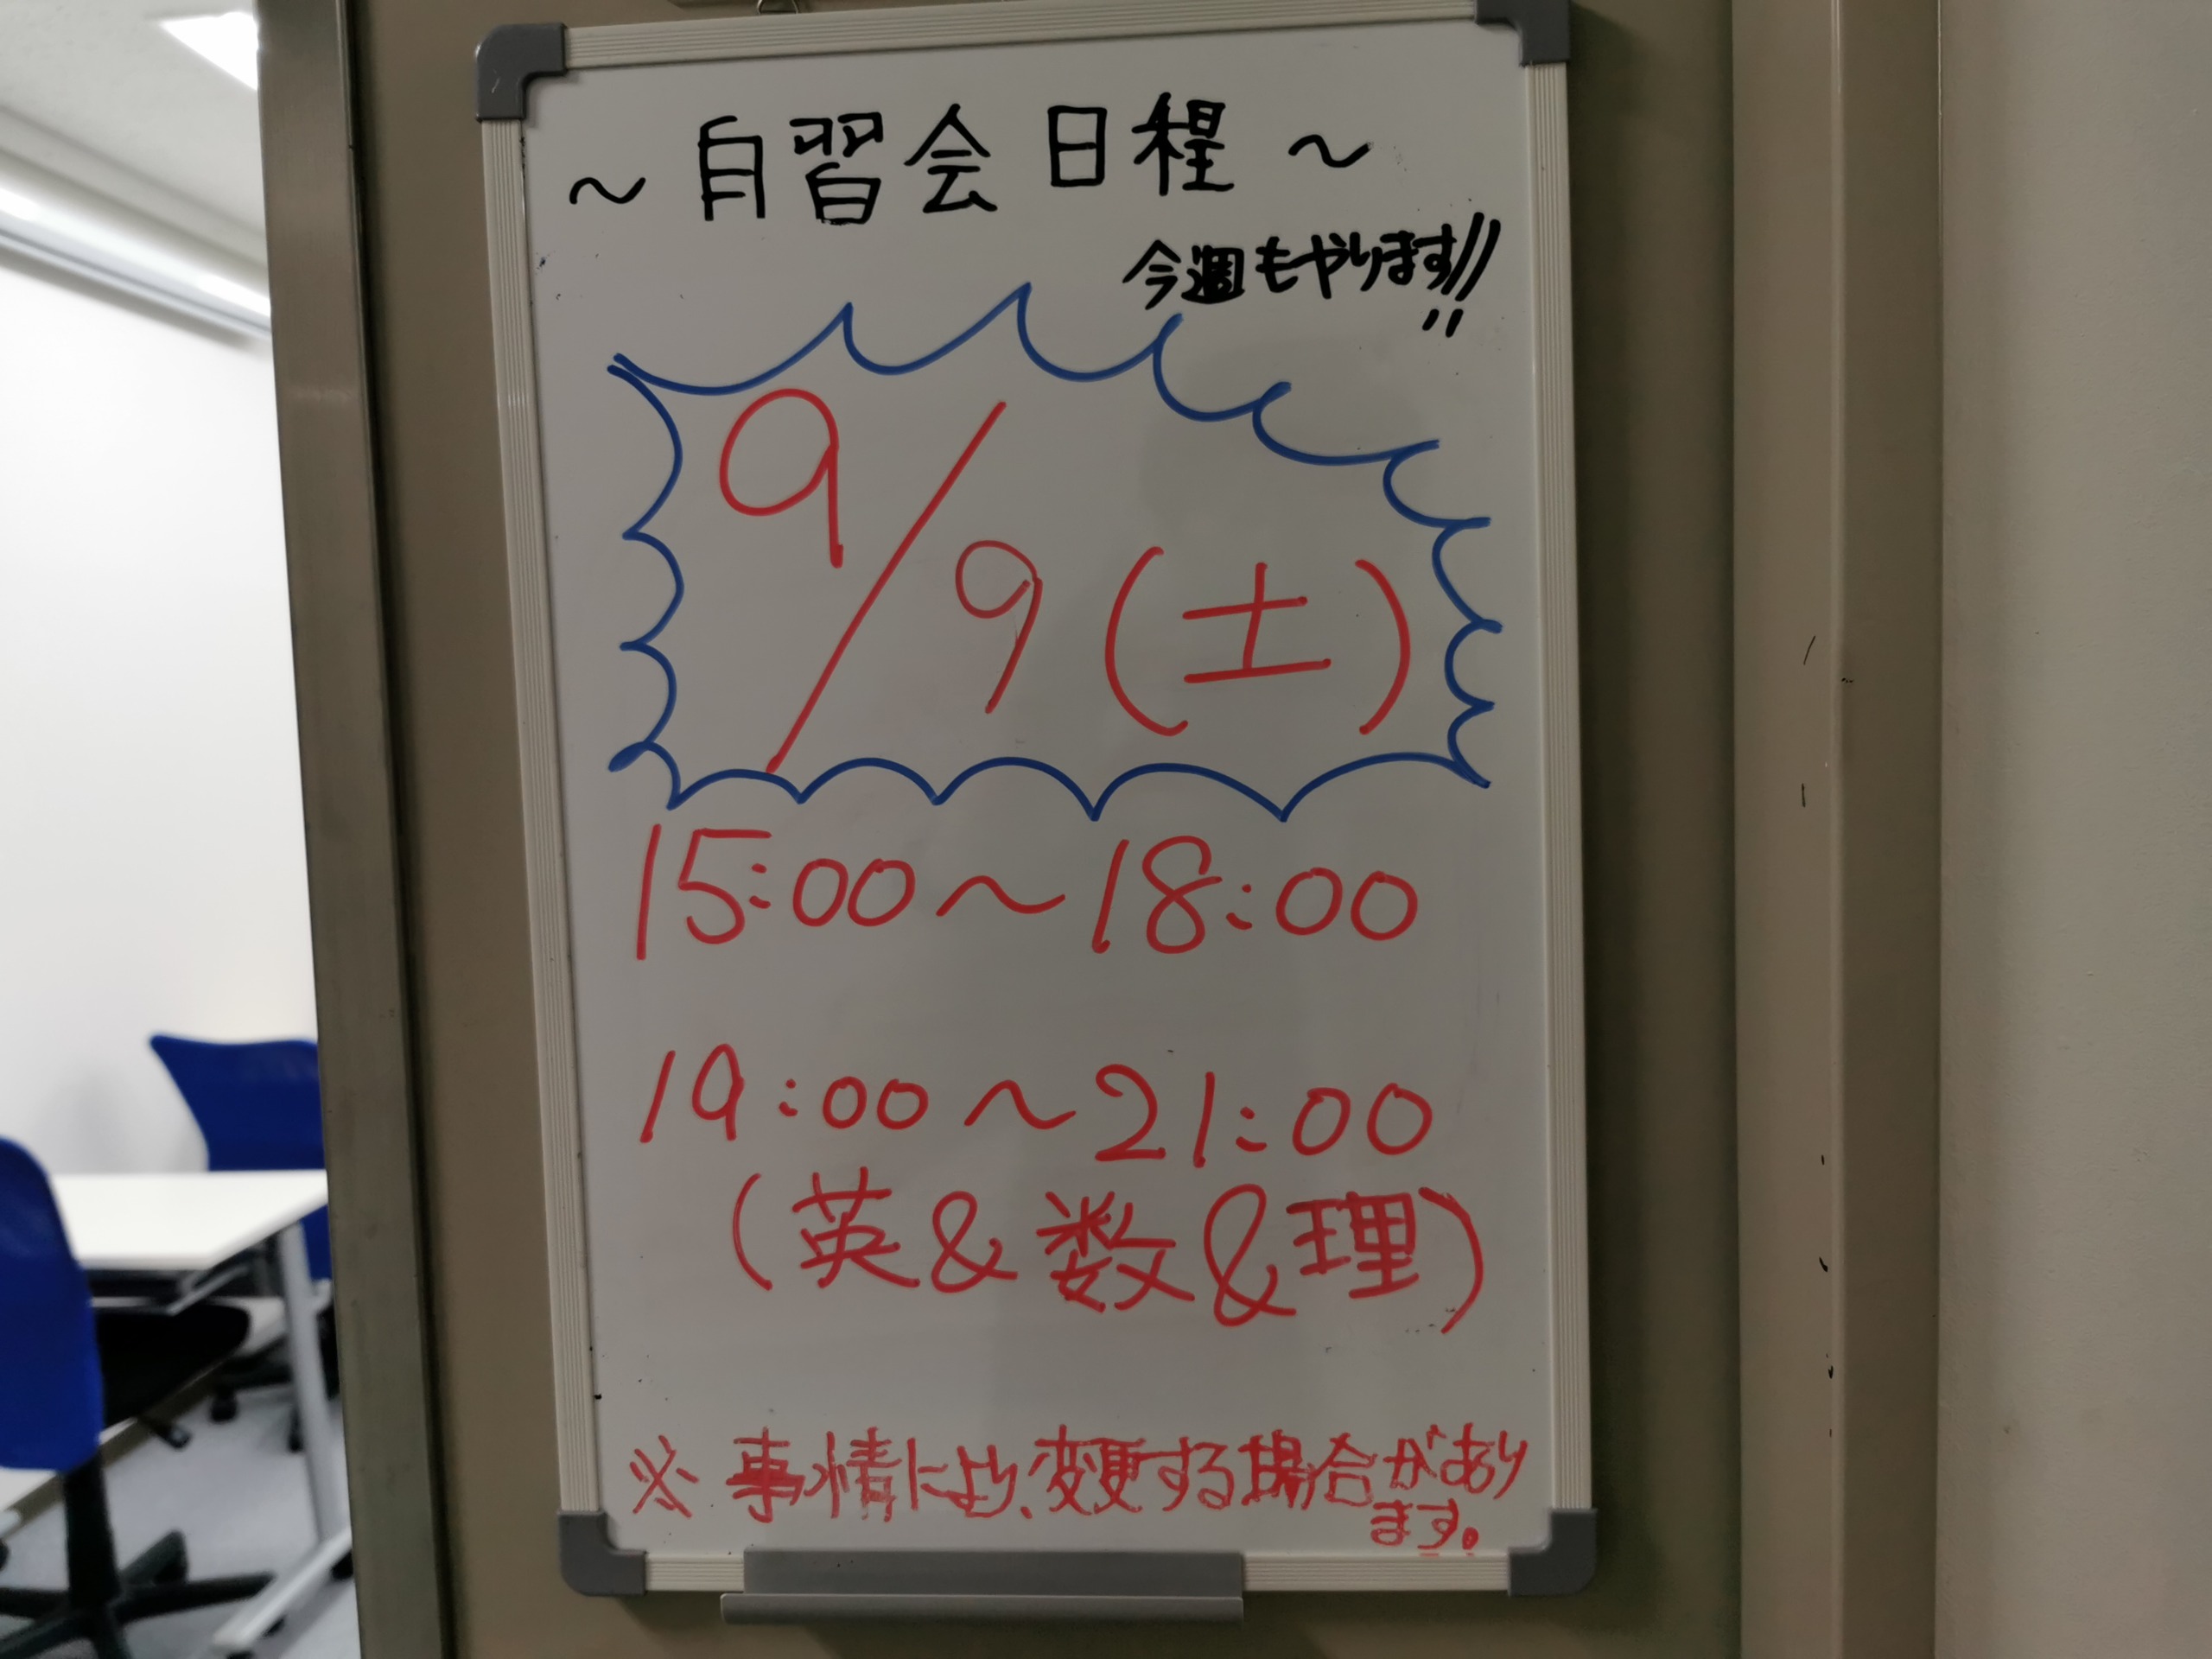 ～自習会日程～
今週もやります!!
9/9(土)
15:00～18:00
19:00～21:00
(英&数&理)
※事情により、変更する場合があり
ます。